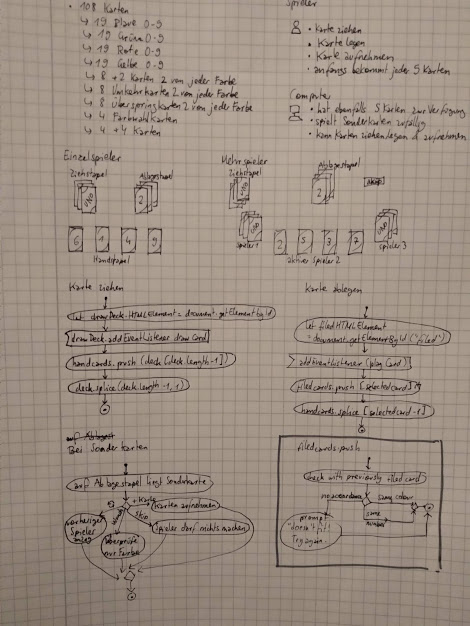 • 108 Karten
↳ 19 Blaue 0-9
↳ 19 Grüne 0-9
↳ 19 Rote 0-9
↳ 19 Gelbe 0-9
↳ 8 +2 Karten 2 von jeder Farbe
↳ 8 Umkehrkarten 2 von jeder Farbe
↳ 8 Überspringkarten 2 von jeder Farbe
↳ 4 Farbwahlkarten
↳ 4 +4 Karten
Spieler
• Karte ziehen
• Karte legen
• Karte aufnehmen
• anfangs bekommt jeder 5 Karten
Computer
• hat ebenfalls 5 Karten zur Verfügung
• spielt Sonderkarten zufällig
• kann Karten ziehen legen & aufnehmen
Einzelspieler
Ziehstapel
Ablagestapel
UNO
2
6 1 4 9
Handstapel
Mehrspieler
Ziehstapel
Ablagestapel
UNO
2
UNO
Spieler 1
2 5 3 7
aktiver Spieler 2
UNO
Spieler 3
Karte ziehen
let drawDeck.HTMLElement = document.getElementById
drawDeck.addEventListener drawCard
handcards.push (deck[deck.length-1])
deck.splice(deck.length-1,1)
Karte ablegen
let filedHTMLElement
= document.getElementById ("filed")
addEventListener (playCard)
filedcards.push [selectedcard]
handcards.splice [selectedcard-1]
Bei Sonderkarten
auf Ablagestapel liegt Sonderkarte
+Karte
Karten aufnehmen
skip
Spieler darf nichts machen
vorheriger
Spieler
überprüfe
nur Farbe
filedcards.push
check with previously filed card
no accordance
same colour
same
number
prompt
"doesn't fit!
Try again."